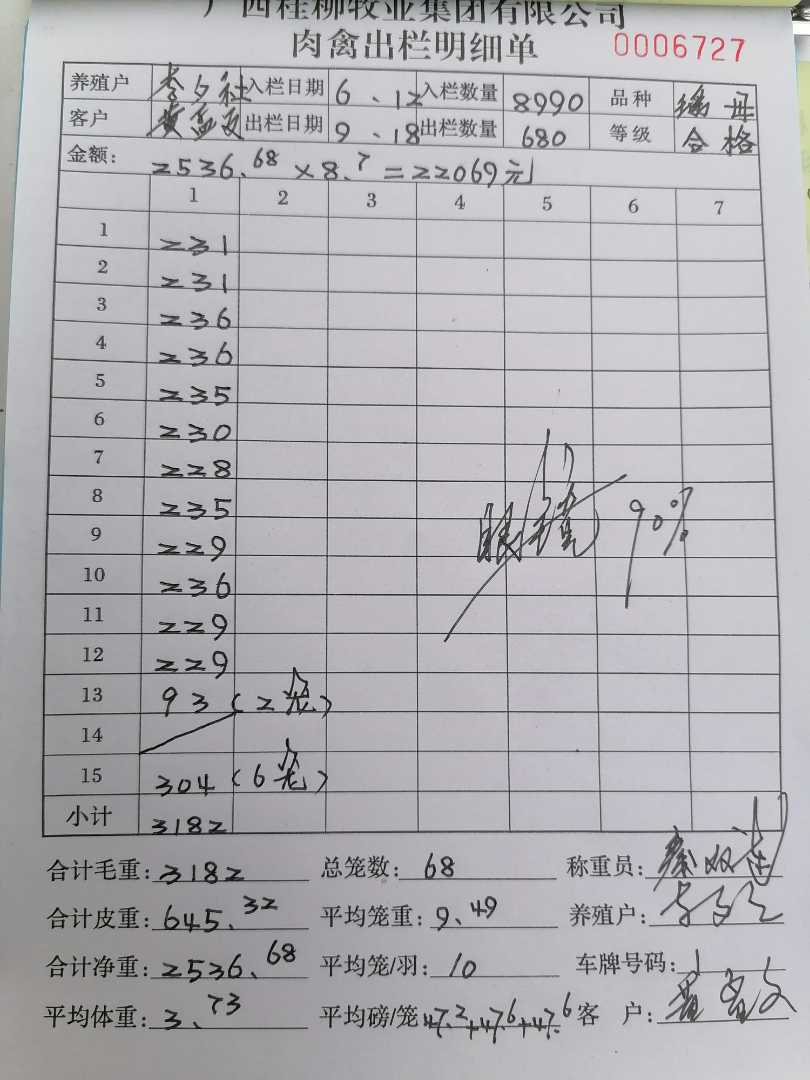 广西桂柳牧业集团有限公司
肉禽出栏明细单 0006727
养殖户 入栏日期 6.12 入栏数量 8990 品种 瑞丹
客户 黄孟文 出栏日期 9.18 出栏数量 680 等级 合格
金额: 2536.68×8.7=22069元
1 2 3 4 5 6 7
1 231
2 231
3 236
4 236
5 235
6 230
7 228
8 235
9 229
10 236
11 229
12 229
13 93(2笼)
14
15 304(6笼)
小计 3182
90%
合计毛重: 3182 总笼数: 68 称重员:
合计皮重: 645.32 平均笼重: 9.49 养殖户:
合计净重: 2536.68 平均笼/羽: 10 车牌号码:
平均体重: 3.73 平均磅/笼 47.2+47.6+47.6 客 户: